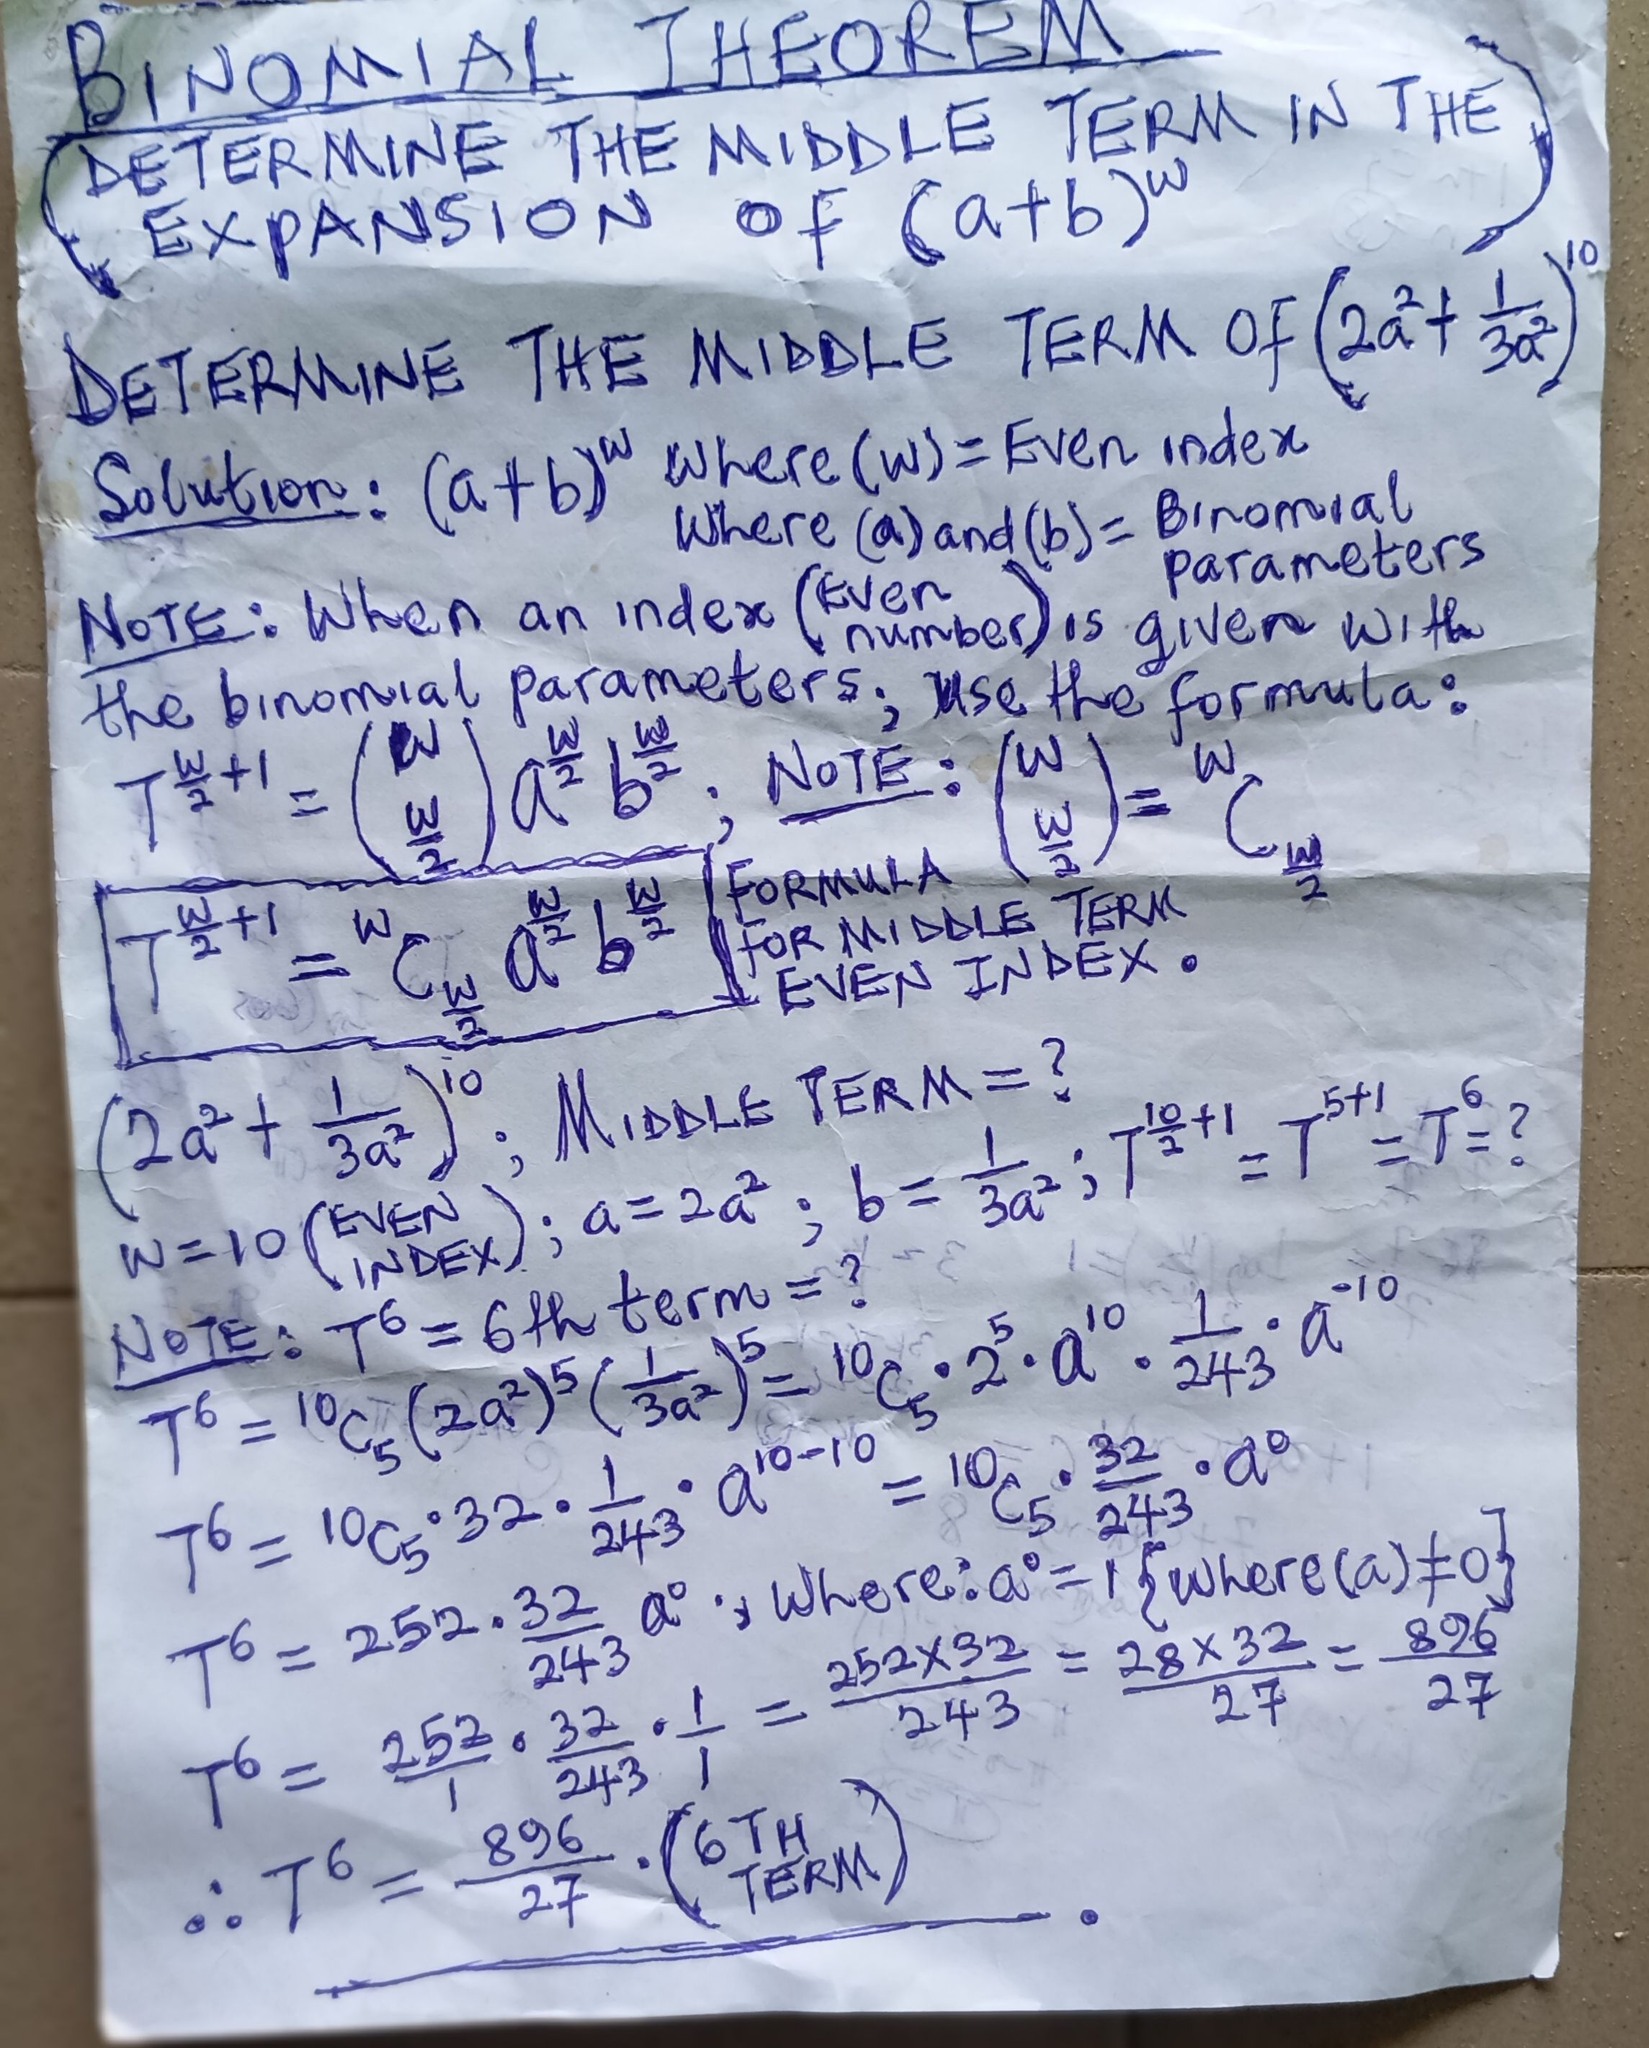 BINOMIAL THEOREM
(DETERMINE THE MIDDLE TERM IN THE
EXPANSION OF (a+b)^w)
DETERMINE THE MIDDLE TERM OF (2a² + 1/3a²)^10
Solution: (a+b)^w Where (w) = Even index
Where (a) and (b) = Binomial
parameters
NOTE: When an index (Even number) is given with
the binomial parameters; use the formula:
T^(w/2+1) = (w w/2) a^(w/2) b^(w/2); NOTE: (w w/2) = ^wC_(w/2)
T^(w/2+1) = ^wC_(w/2) a^(w/2) b^(w/2) FORMULA
FOR MIDDLE TERM
EVEN INDEX.
(2a² + 1/3a²)^10; MIDDLE TERM = ?
w = 10 (EVEN INDEX); a = 2a²; b = 1/3a²; T^(10/2+1) = T^(5+1) = T^6 = ?
NOTE: T^6 = 6th term = ?
T^6 = ^10C_5 (2a²)^5 (1/3a²)^5 = ^10C_5 · 2^5 · a^10 · 1/243 · a^-10
T^6 = ^10C_5 · 32 · 1/243 · a^(10-10) = ^10C_5 · 32/243 · a^0
T^6 = 252 · 32/243 a^0; where: a^0 = 1 {where (a) ≠ 0}
T^6 = 252/1 · 32/243 · 1/1 = 252×32/243 = 28×32/27 = 896/27
∴ T^6 = 896/27 . (6TH TERM).